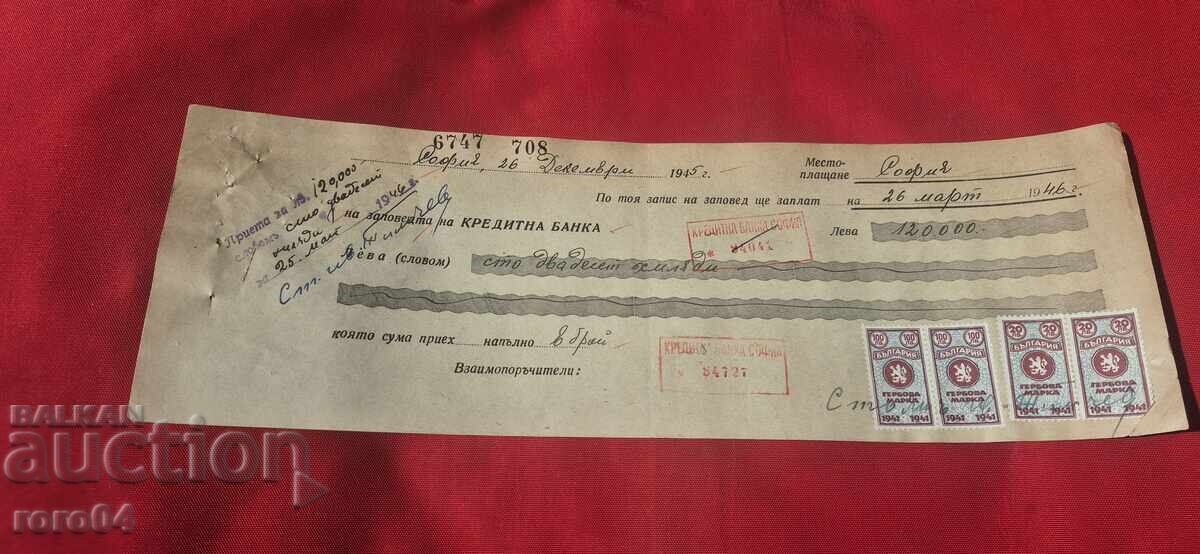 6747 708
София, 26 Декември 1945 г.
Место-
плащане София
По тоя запис на заповед ще заплат на 26 март 1946 г.
на заповедта на КРЕДИТНА БАНКА
КРЕДИТНА БАНКА СОФИЯ
Лева 120000.-
Лева (словом) сто двадесет хиляди
която сума приех напълно в брой
КРЕДИТНА БАНКА СОФИЯ
84727
Взаимопоръчители:
Приета за лв. 120,000
словом сто двадесет
хиляди
за 25. май 1946 г.
100 100 100 100 30 30 30 30
БЪЛГАРИЯ БЪЛГАРИЯ БЪЛГАРИЯ БЪЛГАРИЯ
ГЕРБОВА МАРКА ГЕРБОВА МАРКА ГЕРБОВА МАРКА ГЕРБОВА МАРКА
1941 1941 1941 1941 1941 1941 1941
BALKAN
auction
roro04